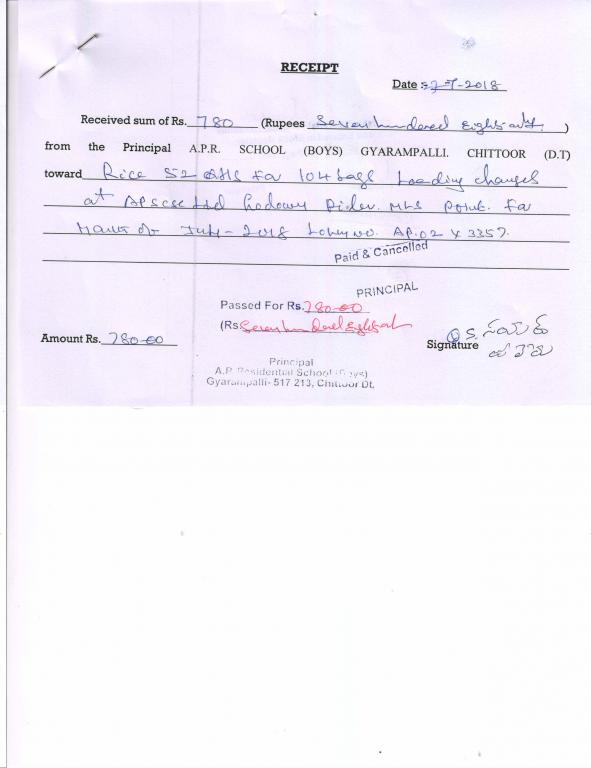 RECEIPT
Date : 2-7-2018
Received sum of Rs. 780 (Rupees Seven hundered Eighty only. )
from the Principal A.P.R. SCHOOL (BOYS) GYARAMPALLI. CHITTOOR (D.T)
toward Rice 52 Qtls for 104 bags Loading charges
at APSCSC Ltd Godown Piler. MLS Point. For
Month of July - 2018 Lorry no. AP.02 X 3357.
Paid & Cancelled
PRINCIPAL
Passed For Rs. 780-00
(Rs. Seven hundered Eighty only
Amount Rs. 780-00
Signature
Principal
A.P. Residential School (Boys)
Gyarampalli- 517 213, Chittoor Dt.